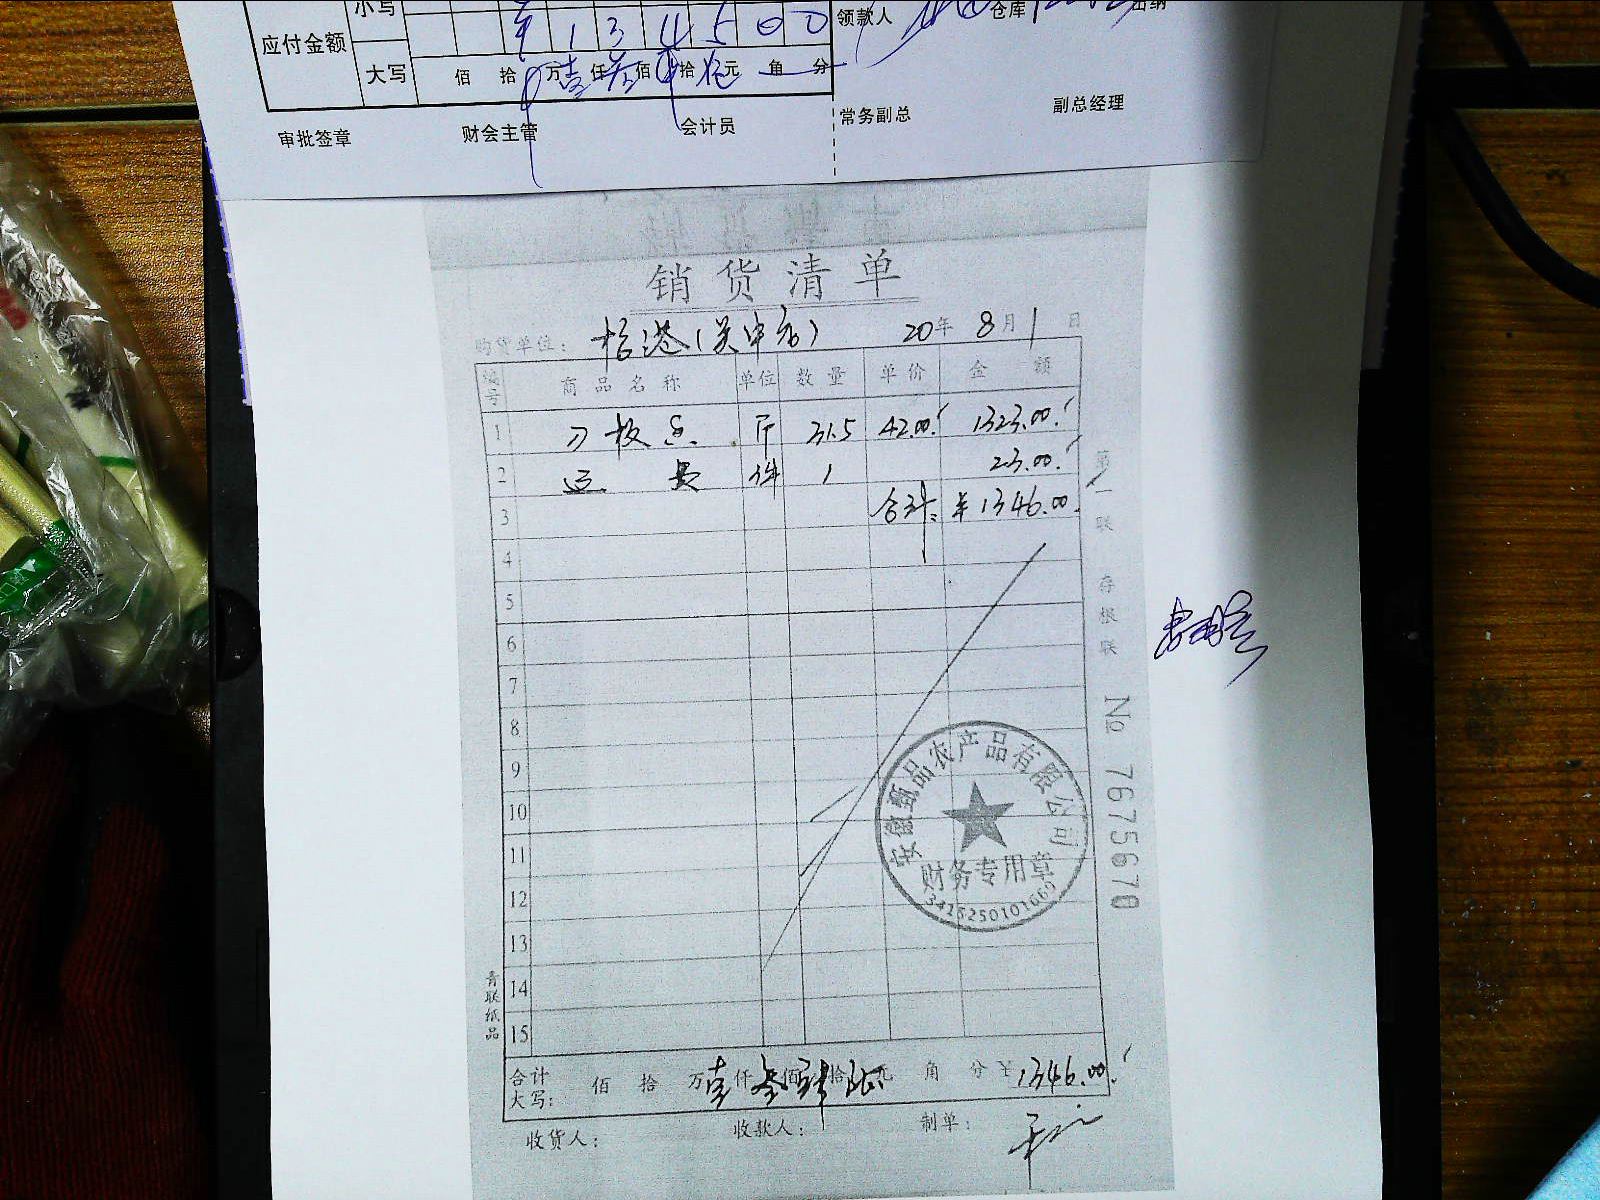 小写
¥ 1 3 4 5 0 0
领款人
仓库
出纳
应付金额
大写
佰 拾 万 壹 仟 叁 佰 肆 拾 伍 元 角 分
审批签章
财会主管
会计员
常务副总
副总经理
销货清单
购货单位:
20年 8月 1日
编号 商品名称 单位 数量 单价 金额
1 刀板香 斤 31.5 42.00 1323.00
2 运费 件 1 23.00
3 合计: ¥1346.00
4
5
6
7
8
9
10
11
12
13
14
15
第一联 存根联
No 7675670
安徽甄品农产品有限公司
财务专用章
3415250101669
青联纸品
合计大写: 佰 拾 万 壹 仟 叁 佰 肆 拾 陆 元 角 分 ¥1346.00
收货人:
收款人:
制单: